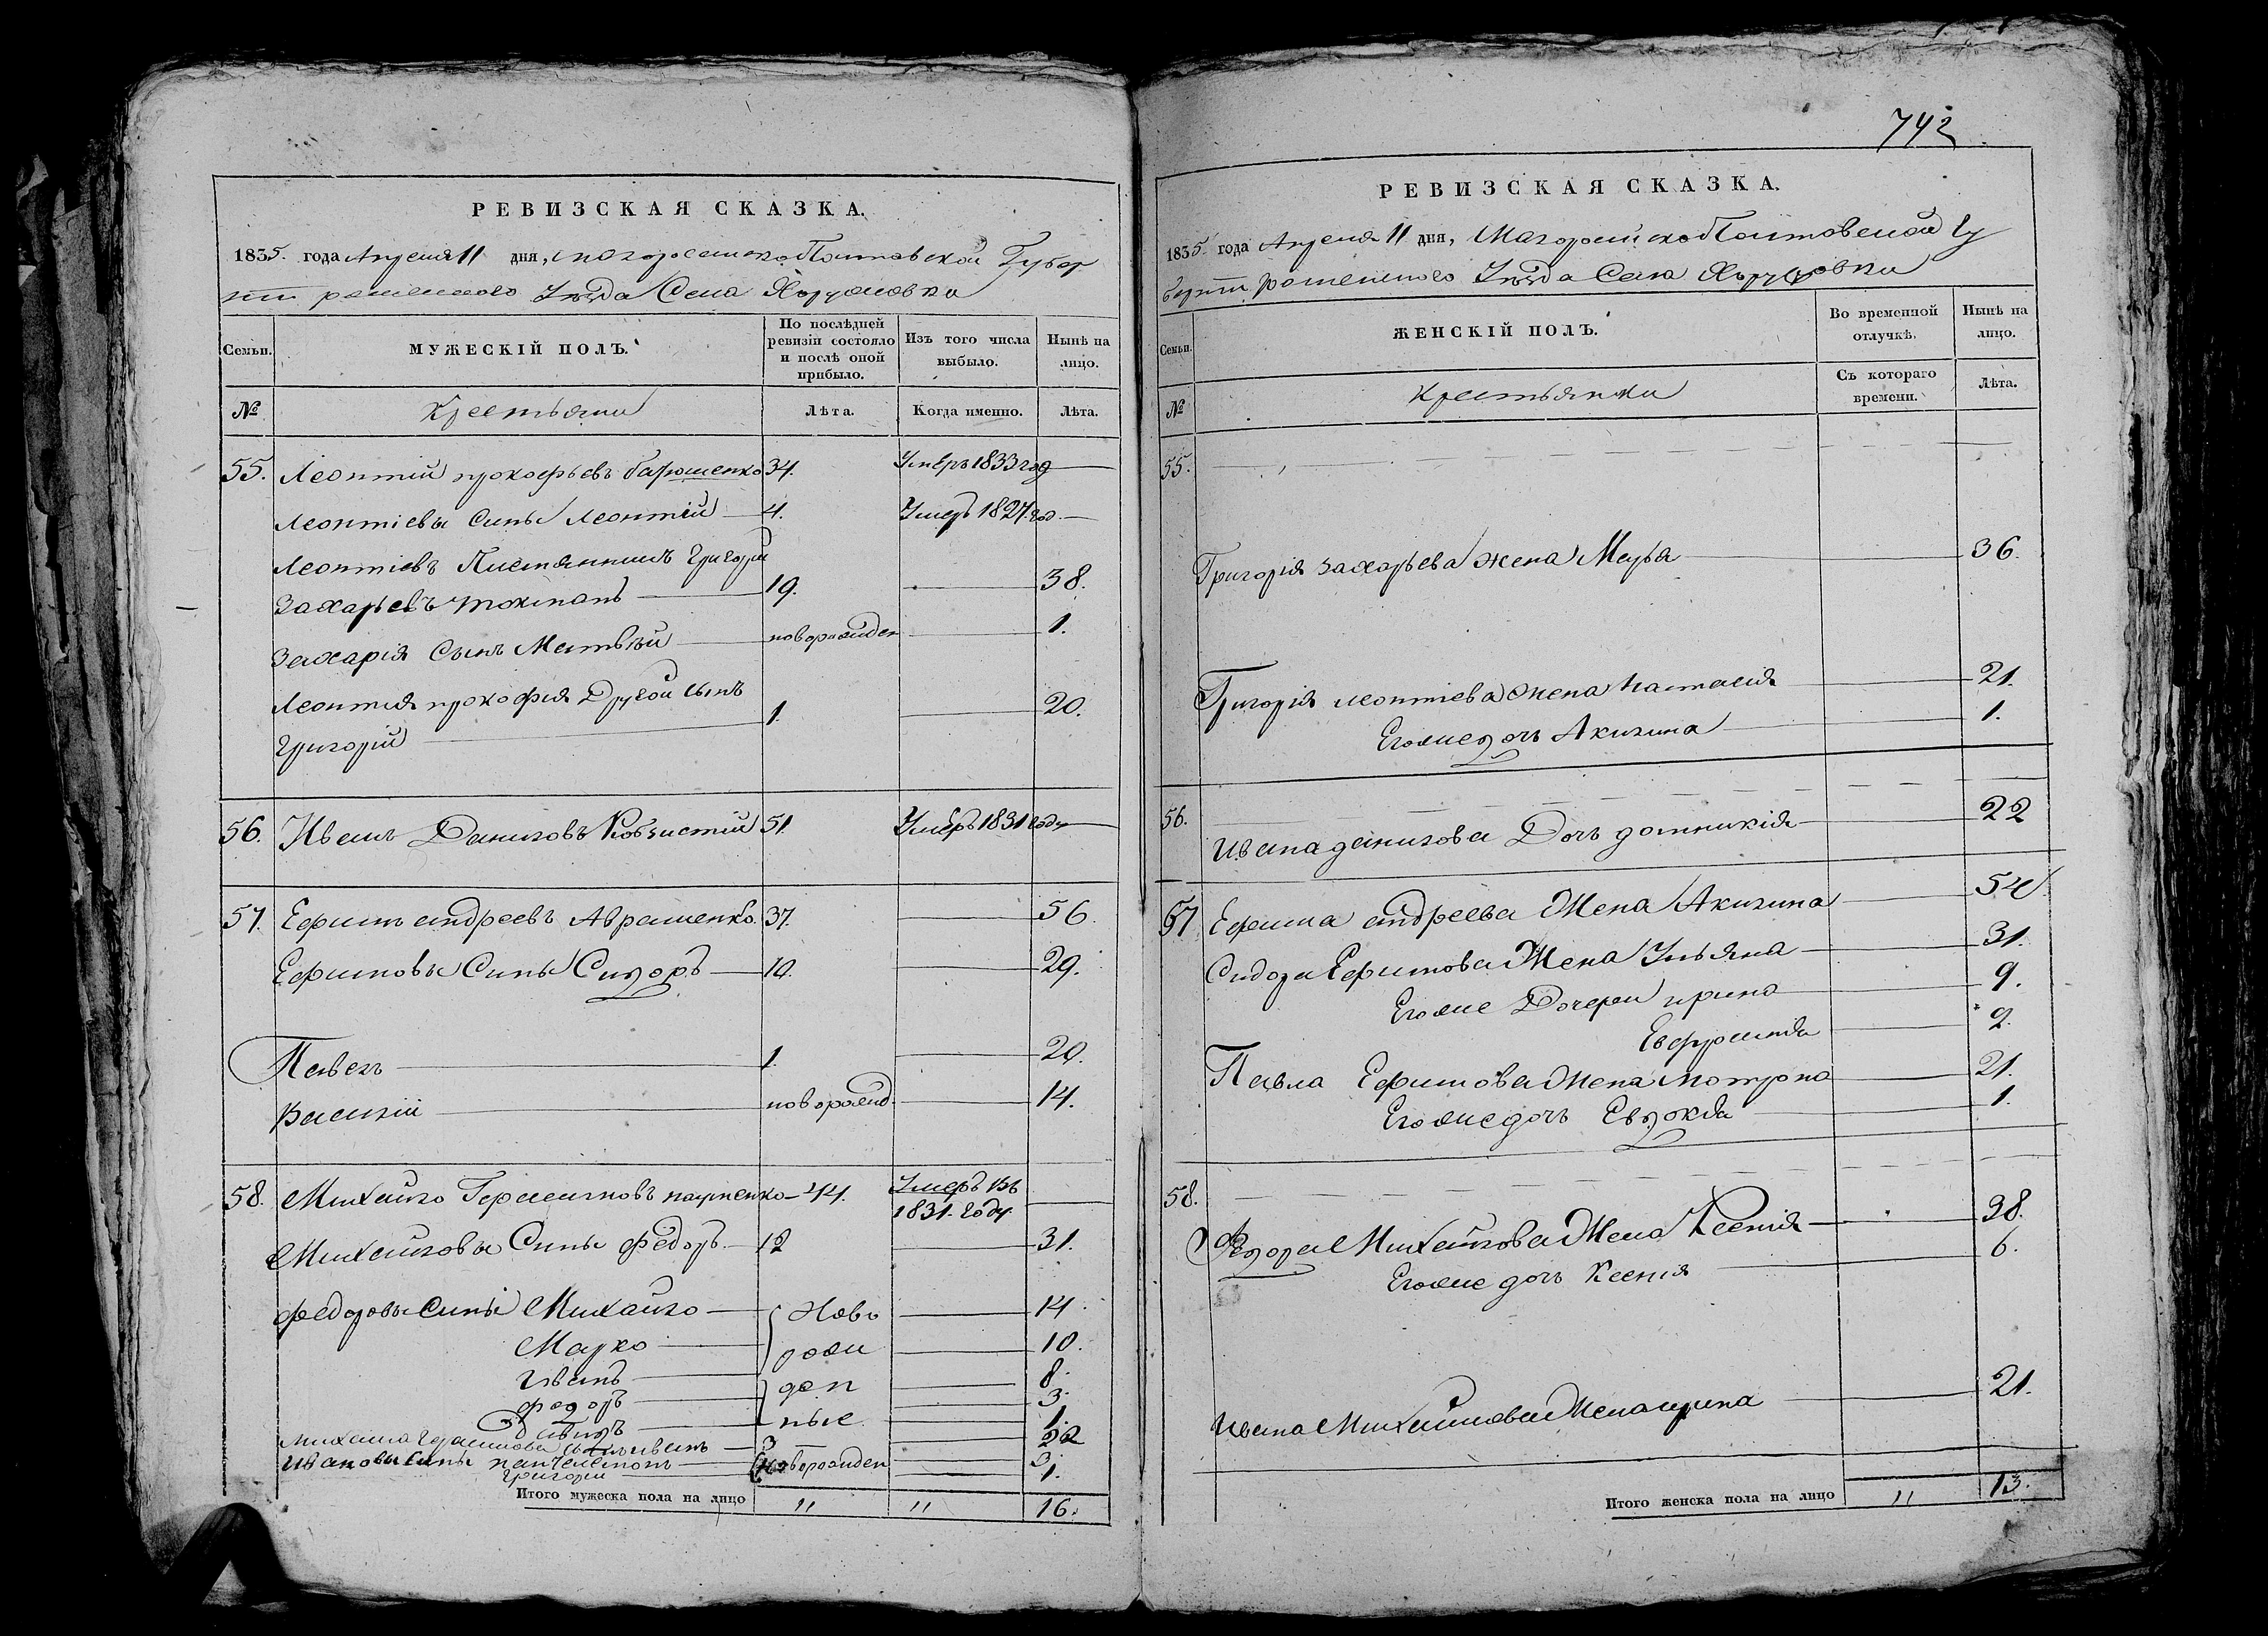 РЕВИЗСКАЯ СКАЗКА.
1835. года Апреля 11 дня, Малоросийско Полтавской Губер
нии роменского Уѣзда Села
Семьи.
МУЖЕСКІЙ ПОЛЪ.
По послѣдней ревизіи состояло и послѣ оной прибыло.
Изъ того числа выбыло.
Нынѣ на лицо.
№
Крестьяни
Лѣта.
Когда именно.
Лѣта.
55. Леонтій прокофьевъ 34. Умеръ 1833 год
Леонтіевы Сины Леонтій 4. Умеръ 1827 год.
Леонтіевъ Племянникъ Григорій
Захарьевъ 19. 38.
Захарія Сынъ Матвѣй новорожден 1.
Леонтія прокофія Другой сынъ
Григорій 1. 20.
56. Иванъ Даниловъ 51. Умеръ 1831 году
57. Ефимъ андреевъ Авраменко. 37. 56.
Ефимовы Сины Сидоръ 10. 29.
Павелъ 1. 20.
Василій новорожд. 14.
58. Михайло Герасимовъ 44. Умеръ въ
1831. году
Михайловы Сины Федоръ 12 31.
Федоровы Сини Михайло Ново 14.
Марко рожи 10.
Иванъ 8.
ден
Федоръ 3.
Давидъ ные 1.
Михаила Герасимова сынъ иванъ 3 22
Ивановы Сины пантелемонъ новорожден 3.
Григорій 1.
Итого мужеска пола на лицо " " 16.
742
РЕВИЗСКАЯ СКАЗКА.
1835 года Апреля 11 дня, Малоросийско Полтавской Гу
бернии роменского Уѣзда Села
Семьи.
ЖЕНСКІЙ ПОЛЪ.
Во временной отлучкѣ.
Нынѣ на лицо.
№
Крестьянки
Съ котораго времени.
Лѣта.
55.
Григорія захарьева жена Марья 36.
Григорія леонтіева жена Настасія 21.
Егожиедочъ Акилина 1.
56.
Ивана данилова Дочъ домникія 22
57 Ефима андреева Жена Акилина 54
Сидора Ефимова Жена Ульяна 31.
Егожие Дочери ирина 9.
Евфросинія 2.
Павла Ефимова Жена мотрона 21.
Егожиедочъ Евдокія 1.
58.
Федора Михайлова Жена Ксенія 38.
Егожие дочъ Ксенія 6.
Ивана Михайлова Жена ирина 21.
Итого женска пола на лицо " 13.